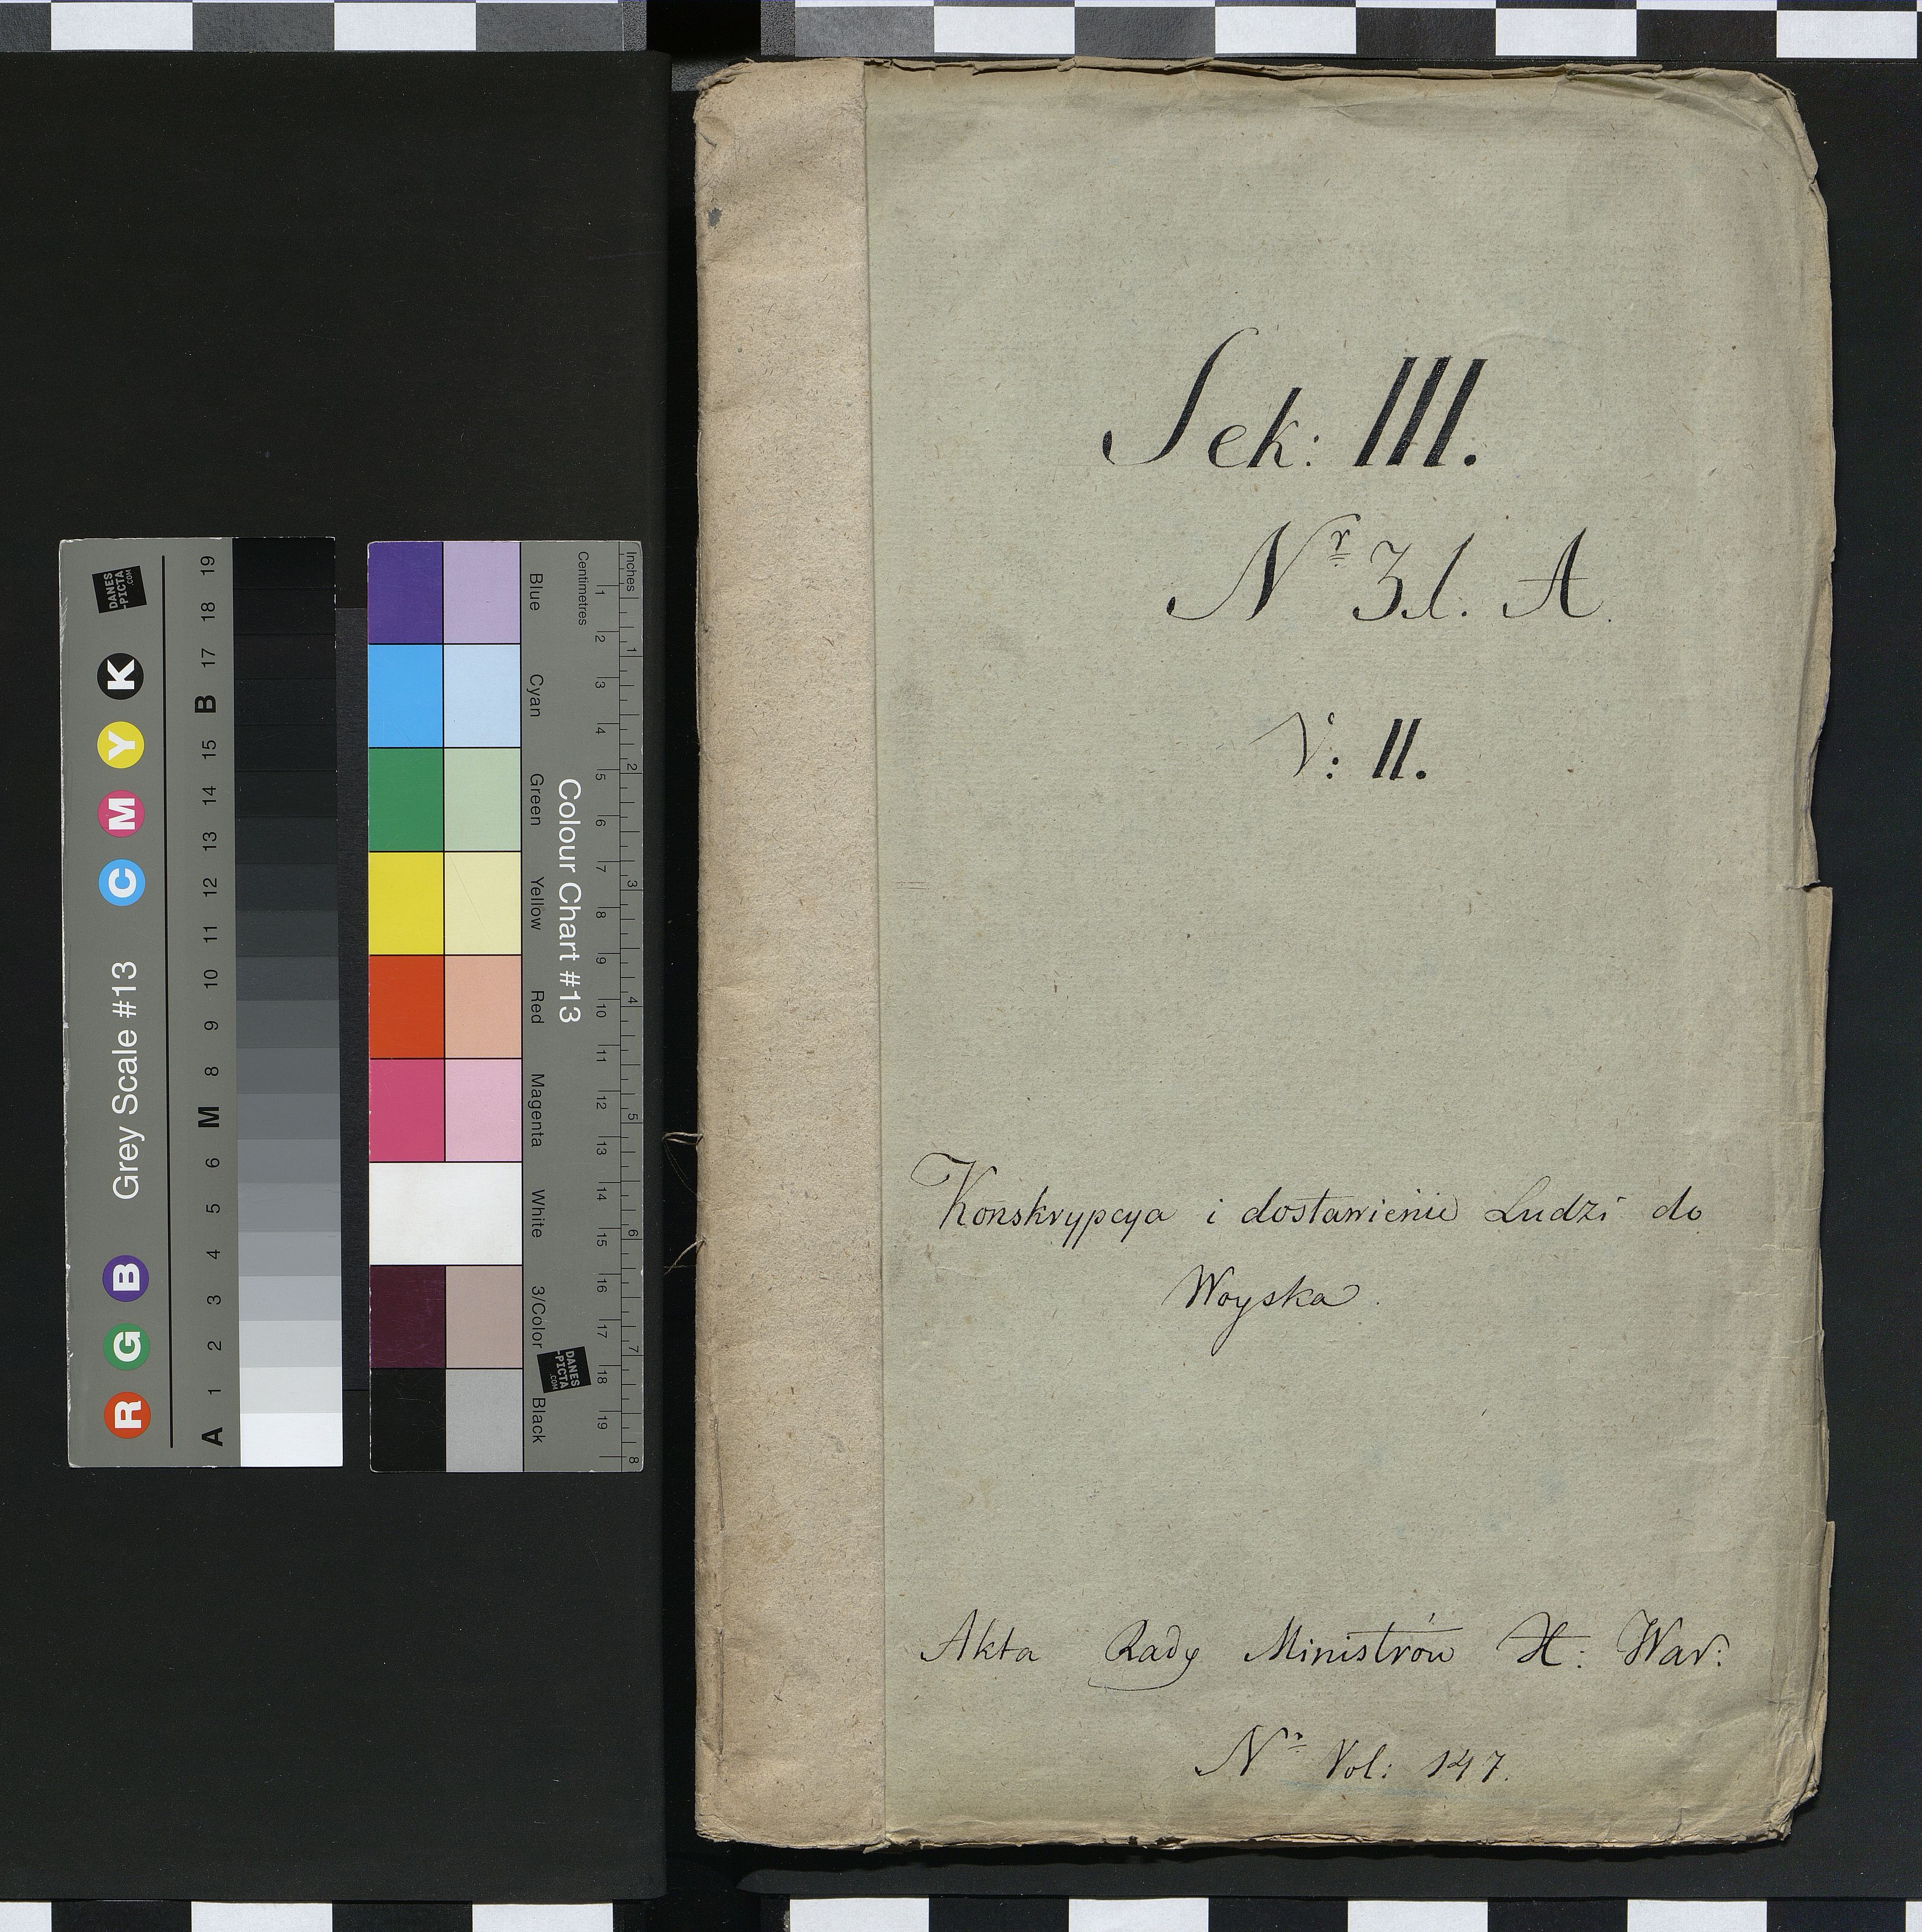 Sek: III.
Nr 3.l. A.
V: II.
Konskrypcya i dostawienie Ludzi do
Woyska.
Akta Rady Ministrów X: War:
Nr Vol: 147.
DANES
-PICTA
.COM
Grey Scale #13
R G B C M Y K
A 1 2 3 4 5 6 M 8 9 10 11 12 13 14 15 B 17 18 19
Colour Chart #13
Blue Cyan Green Yellow Red Magenta White 3/Color Black
DANES
-PICTA
.COM
Centimetres 1 2 3 4 5 6 7 8 9 10 11 12 13 14 15 16 17 18 19
Inches 1 2 3 4 5 6 7 8